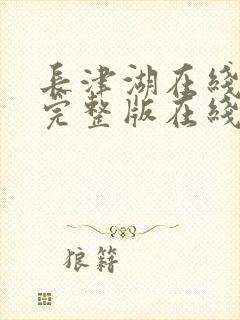 長津湖在綫
完整版在綫
狼籍